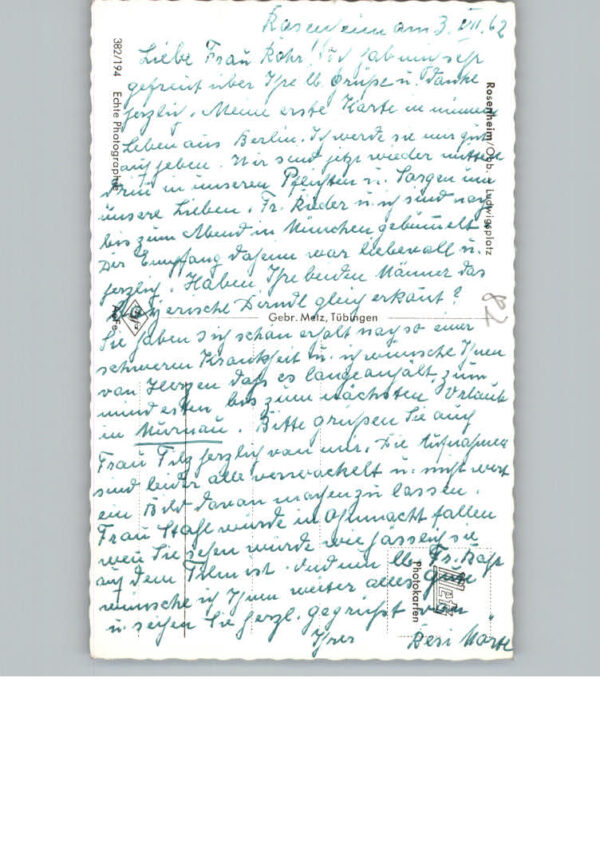 Rosenheim am 3. VII. 62
Liebe Frau Rohr! Ich hab mich sehr
gefreut über Ihre lb Grüße u. danke
herzlich. Meine erste Karte in meinem
Leben aus Berlin. Ich werde sie mir gut
aufheben. Wir sind jetzt wieder mitten
drin in unseren Pflichten u. Sorgen um
unsere Lieben. Fr. u. ich sind noch
bis zum Abend in München gebummelt.
Der Empfang daheim war liebevoll u.
herzlich. Haben Ihre beiden Männer das
bayerische Dirndl gleich erkant?
Sie haben sich schon erholt nach so einer
schweren Krankheit u. ich wünsche Ihnen
von Herzen daß es lange anhält, zum
mindesten bis zum nächsten Urlaub
in Murnau. Bitte grüßen Sie auch
Frau Filz herzlich von mir. Die Aufnahmen
sind leider alle verwackelt u. nicht wert
ein Bild davon machen zu lassen.
Frau Stahl würde in Ohnmacht fallen
wen Sie sehen würde wie häßlich sie
auf dem Film ist. Und nun lb Fr. Rohr
wünsche ich Ihnen weiter alles gute
u. seien Sie herzl. gegrüßt von
Ihrer Resi
382/194 Echte Photographie
Rosenheim/Obb. Ludwigsplatz
Gebr. Metz, Tübingen
Metz
Photokarten
82